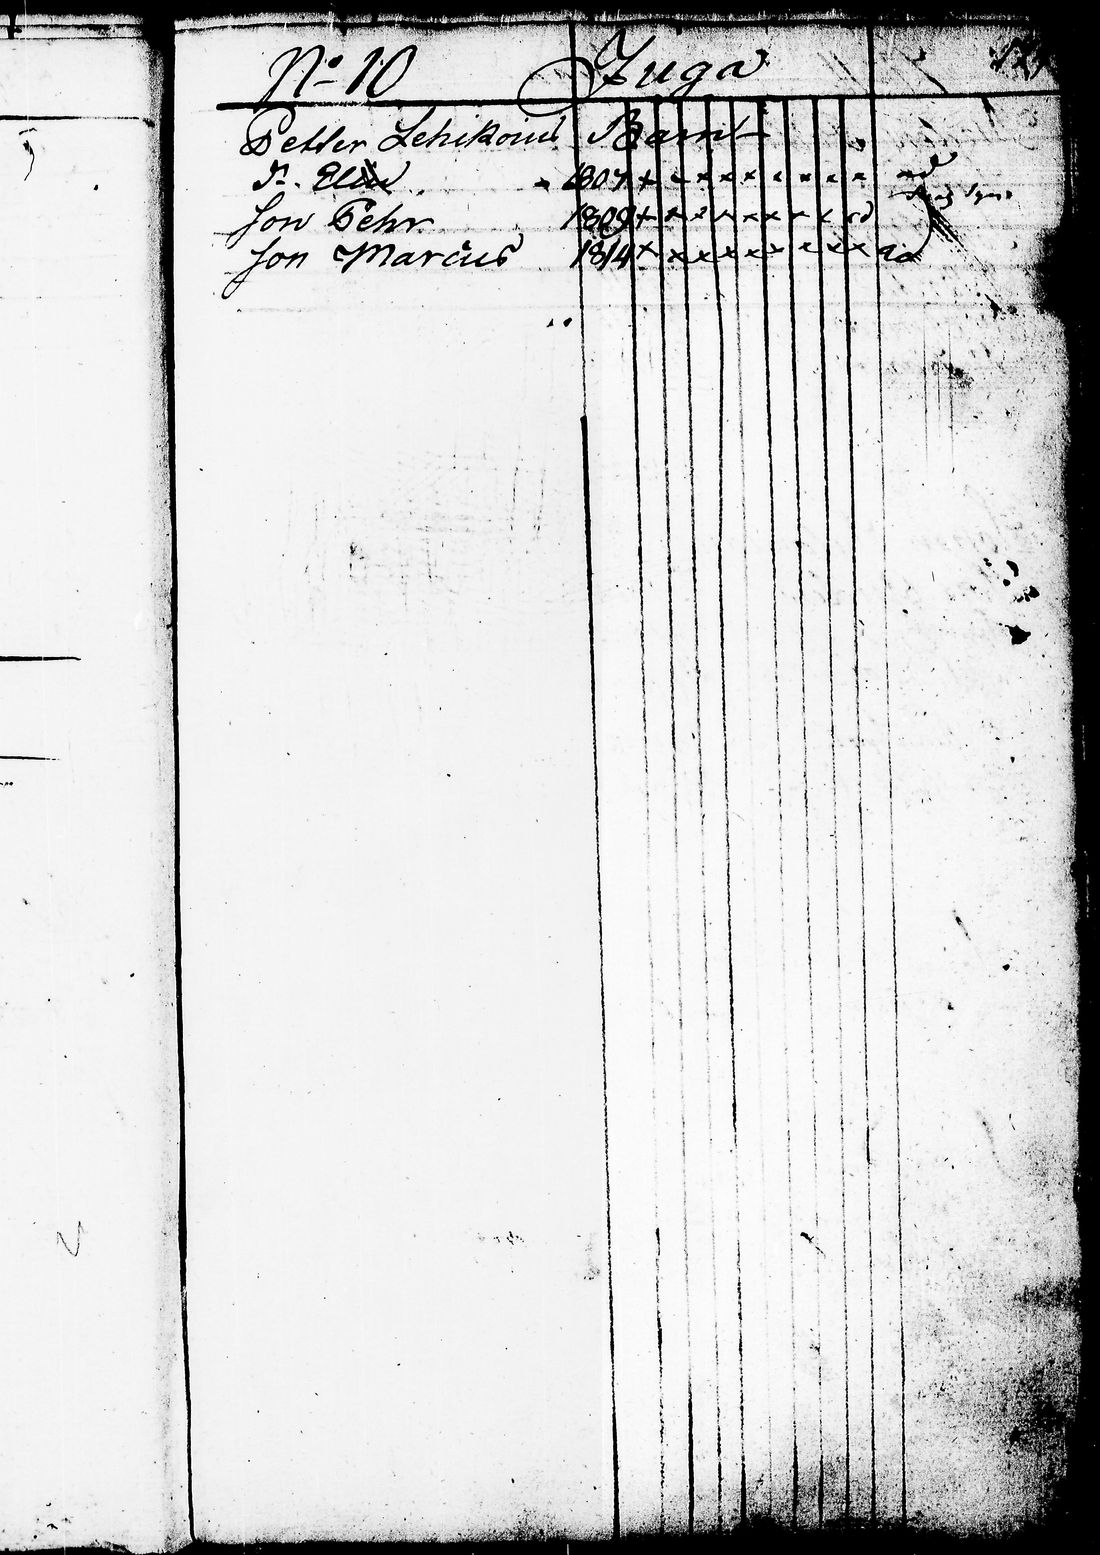 No 10 Juga
Petter Lehikoins Barn
D. Elin 1807 x x x x x x x x x
Son Pehr 1809 x x x x x x x x
Son Marcus 1814 x x x x x x x x x